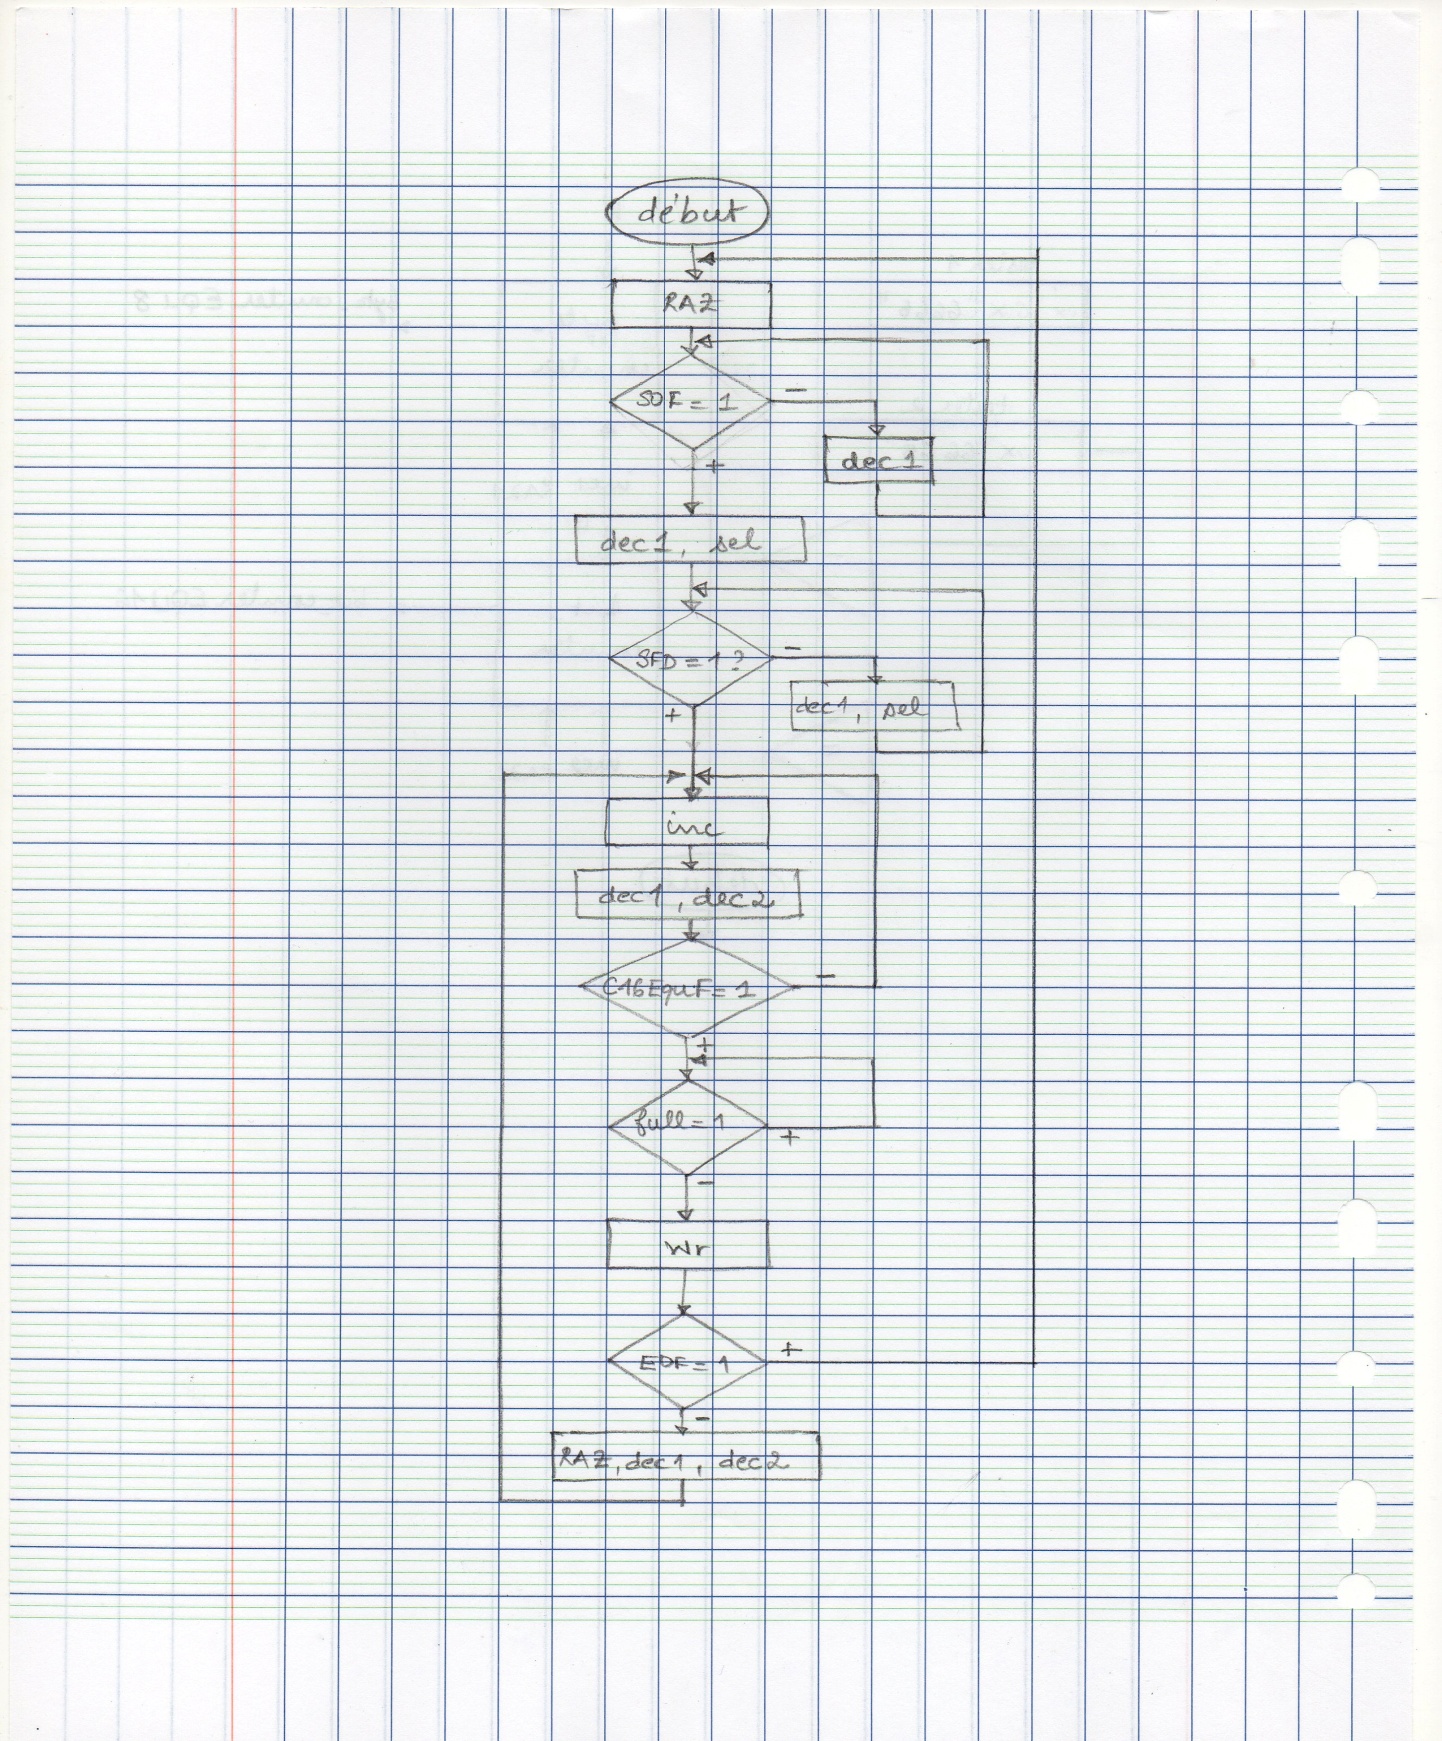 début
RAZ
SOF = 1
-
dec1
+
dec1, sel
SFD = 1 ?
-
dec1, sel
+
inc
dec1, dec2
C16EquF = 1
-
+
full = 1
+
-
Wr
EOF = 1
+
-
RAZ, dec1, dec2